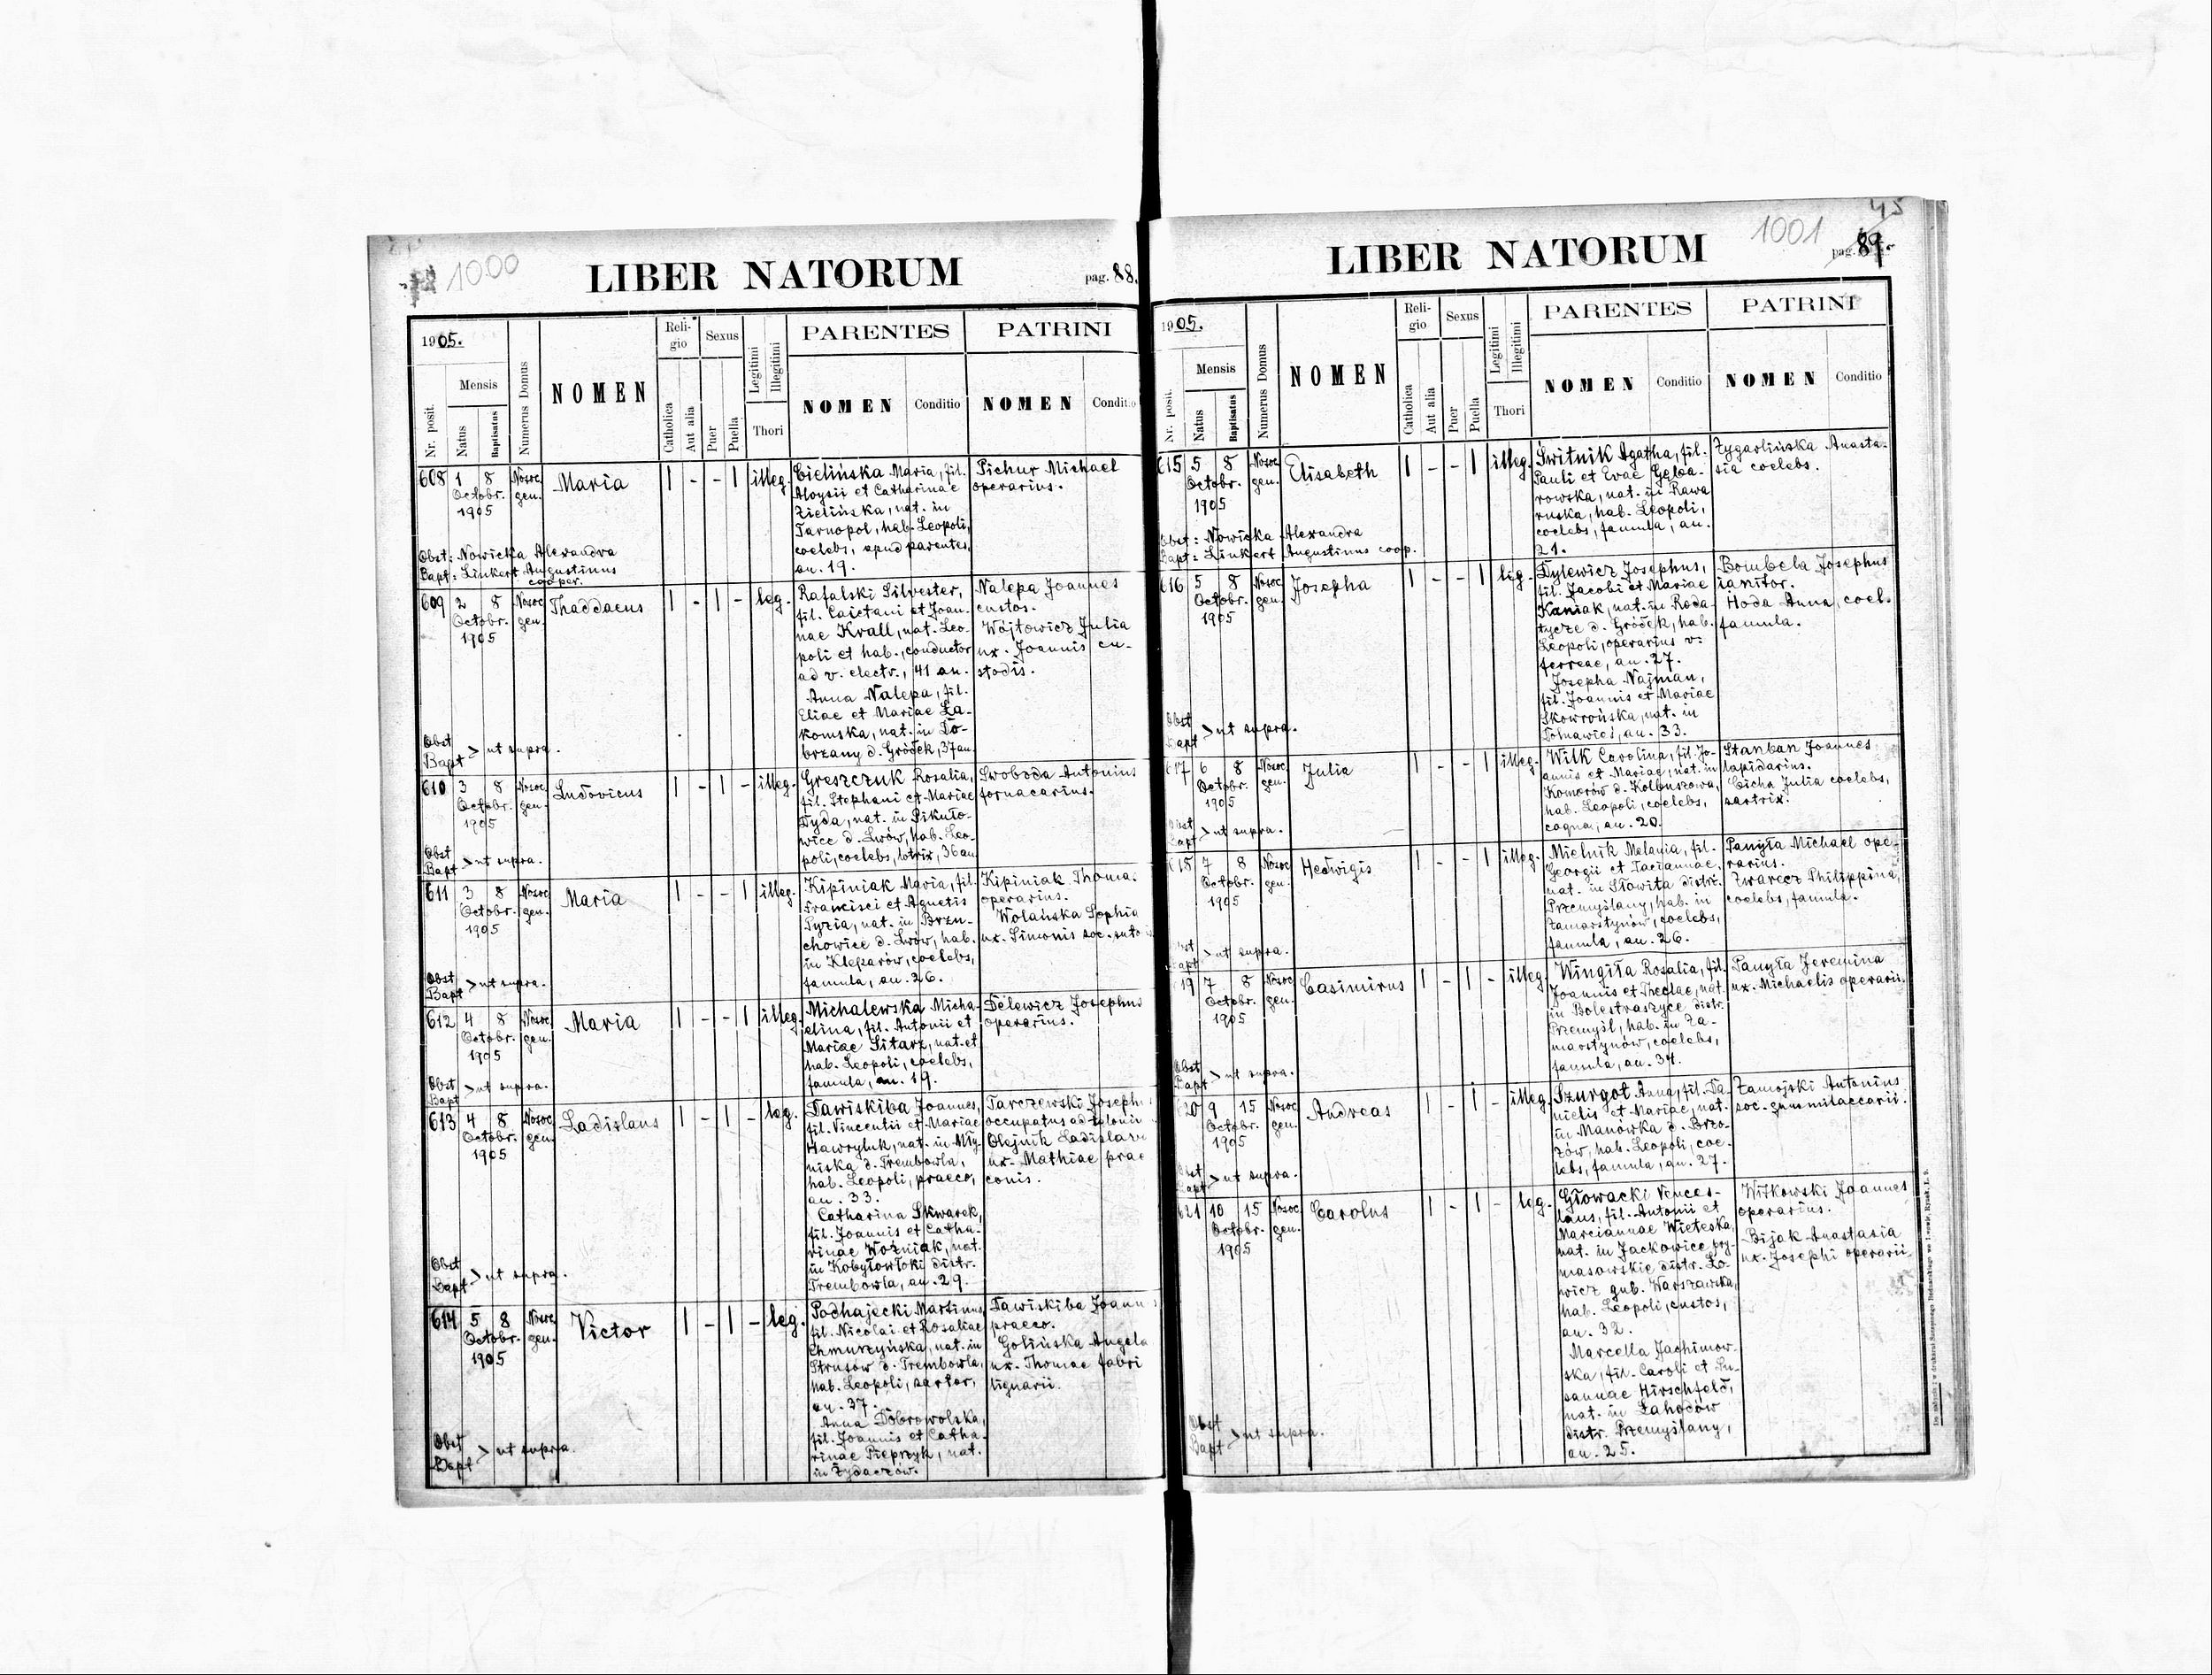 1000
LIBER NATORUM
pag. 88.
1905.
Nr. posit.
Mensis
Natus
Baptisatus
Numerus Domus
NOMEN
Religio
Catholica
Aut alia
Sexus
Puer
Puella
Legitimi
Illegitimi
Thori
PARENTES
NOMEN
Conditio
PATRINI
NOMEN
Conditio
608 1 8 Nosoc. gen.
Octobr.
1905
Maria
1 - - 1 illeg.
Cielińska Maria, fil.
Aloysii et Catharinae
Zielińska, nat. in
Tarnopol, hab. Leopoli,
coelebs, apud parentes,
an. 19.
Pichur Michael
operarius.
Obst: Nowicka Alexandra
Bapt: Linkert Augustinus
cooper.
609 2 8 Nosoc. gen.
Octobr.
1905
Thaddaeus
1 - 1 - leg.
Rafalski Silvester,
fil. Caietani et Joan-
nae Krall, nat. Leo-
poli et hab., conductor
ad v. electr., 41 an.
Anna Nalepa, fil.
Eliae et Mariae La-
komska, nat. in Do-
brzany d. Gródek, 37 an.
Nalepa Joannes
custos.
Wójtowicz Julia
ux. Joannis cu-
stodis.
Obst
Bapt > ut supra.
610 3 8 Nosoc. gen.
Octobr.
1905
Ludovicus
1 - 1 - illeg.
Greszczuk Rosalia,
fil. Stephani et Mariae
Dyda, nat. in Pikuło-
wice d. Lwów, hab. Leo-
poli, coelebs, lotrix, 36 an
Swoboda Antonius
fornacarius.
Obst
Bapt > ut supra.
611 3 8 Nosoc. gen.
Octobr.
1905
Maria
1 - - 1 illeg.
Kipiniak Maria, fil.
Francisci et Agnetis
Pyzia, nat. in Brzu-
chowice d. Lwów, hab.
in Kleparów, coelebs,
famula, an. 26.
Kipiniak Thoma.
operarius.
Wolańska Sophia
ux. Simonis soc. suto
Obst
Bapt > ut supra.
612 4 8 Nosoc. gen.
Octobr.
1905
Maria
1 - - 1 illeg.
Michalewska Micha-
elina, fil. Antonii et
Mariae Sitarz, nat. et
hab. Leopoli, coelebs,
famula, an. 19.
Delewicz Josephus
operarius.
Obst
Bapt > ut supra.
613 4 8 Nosoc. gen.
Octobr.
1905
Ladislaus
1 - 1 - leg.
Dawiskiba Joannes,
fil. Vincentii et Mariae
Hawryluk, nat. in Mły-
niska d. Trembowla,
hab. Leopoli, praeco,
an. 33.
Catharina Skwarek,
fil. Joannis et Catha-
rinae Woźniak, nat.
in Kobyłowłoki distr.
Trembowla, an. 29.
Tarczewski Joseph
occupatus ad telonii
Olejnik Ladislava
ux. Mathiae prae
conis.
Obst
Bapt > ut supra.
614 5 8 Nosoc. gen.
Octobr.
1905
Victor
1 - 1 - leg.
Podhajecki Martinus
fil. Nicolai et Rosaliae
Chmurzyńska, nat. in
Strusów d. Trembowla,
hab. Leopoli, sartor,
an. 37.
Anna Dobrowolska,
fil. Joannis et Catha-
rinae Pieprzyk, nat.
in Żydaczów.
Dawiskiba Joann
praeco.
Golińska Angela
ux. Thomae fabri
lignarii.
Obst
Bapt > ut supra.
1001
45
LIBER NATORUM
pag. 89.
1905.
Nr. posit.
Mensis
Natus
Baptisatus
Numerus Domus
NOMEN
Religio
Catholica
Aut alia
Sexus
Puer
Puella
Legitimi
Illegitimi
Thori
PARENTES
NOMEN
Conditio
PATRINI
NOMEN
Conditio
615 5 8 Nosoc. gen.
Octobr.
1905
Elisabeth
1 - - 1 illeg.
Świtnik Agatha, fil.
Pauli et Evae
rowska, nat. in Rawa
ruska, hab. Leopoli,
coelebs, famula, an.
21.
Zygarlińska Anasta-
sia coelebs.
Obst: Nowicka Alexandra
Bapt: Linkert Augustinus coop.
616 5 8 Nosoc. gen.
Octobr.
1905
Josepha
1 - - 1 leg.
Dylewicz Josephus,
fil. Jacobi et Mariae
Kaniak, nat. in Roda-
tycze d. Gródek, hab.
Leopoli, operarius v.
ferreae, an. 27.
Josepha Najman,
fil. Joannis et Mariae
Skowrońska, nat. in
an. 33.
Bombela Josephus
ianitor.
Hoda Anna, coel.
famula.
Obst
Bapt > ut supra.
617 6 8 Nosoc. gen.
Octobr.
1905
Julia
1 - - 1 illeg.
Wilk Carolina, fil. Jo-
annis et Mariae, nat. in
Komorów d. Kolbuszowa,
hab. Leopoli, coelebs,
coqua, an. 20.
Stanban Joannes
lapidarius.
Cicha Julia coelebs,
sartrix.
Obst
Bapt > ut supra.
618 7 8 Nosoc. gen.
Octobr.
1905
Hedwigis
1 - - 1 illeg.
Mielnik Melania, fil.
Georgii et Tacianae,
nat. in Słowita distr.
Przemyślany, hab. in
Zamarstynów, coelebs,
famula, an. 26.
Panyła Michael ope-
rarius.
Zwarcz Philippina,
coelebs, famula.
Obst
Bapt > ut supra.
619 7 8 Nosoc. gen.
Octobr.
1905
Casimirus
1 - 1 - illeg.
Wingiła Rosalia, fil.
Joannis et Theclae, nat.
in Bolestraszyce, distr.
Przemyśl, hab. in Za-
marstynów, coelebs,
famula, an. 34.
Panyła Jeremina
ux. Michaelis operarii.
Obst
Bapt > ut supra.
620 9 15 Nosoc. gen.
Octobr.
1905
Andreas
1 - 1 - illeg.
Szurgot Anna, fil. Da-
nielis et Mariae, nat.
in Manówka d. Brzo-
zów, hab. Leopoli, coe-
lebs, famula, an. 27.
Zamojski Antonius
soc. gummilaccarii.
Obst
Bapt > ut supra.
621 10 15 Nosoc. gen.
Octobr.
1905
Carolus
1 - 1 - leg.
Głowacki Vences-
laus, fil. Antonii et
Marciannae Wieteska,
nat. in Jackowice pry-
masowskie distr. Ło-
wicz gub. Warszawska,
hab. Leopoli, custos,
an. 32.
Marcella Jachimow-
ska, fil. Caroli et Su-
sannae Hirschfeld,
nat. in Lahodów
distr. Przemyślany,
an. 25.
Witkowski Joannes
operarius.
Bijak Anastasia
ux. Josephi operarii
Obst
Bapt > ut supra.